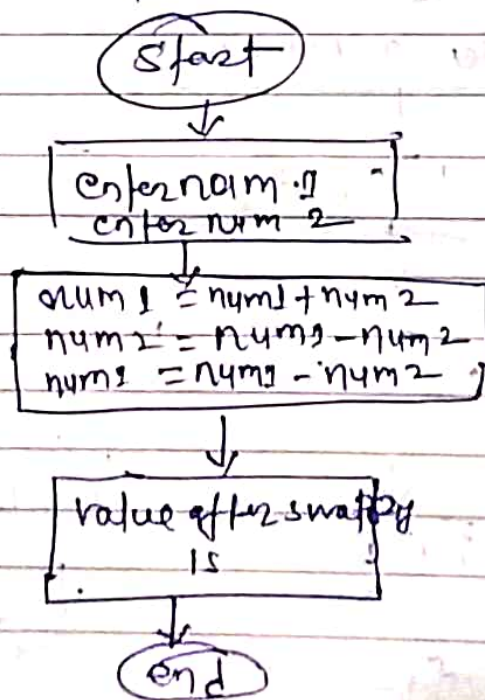 Start
enter num 1
enter num 2
num1 = num1 + num2
num2 = num1 - num2
num1 = num1 - num2
value after swapping
is
end